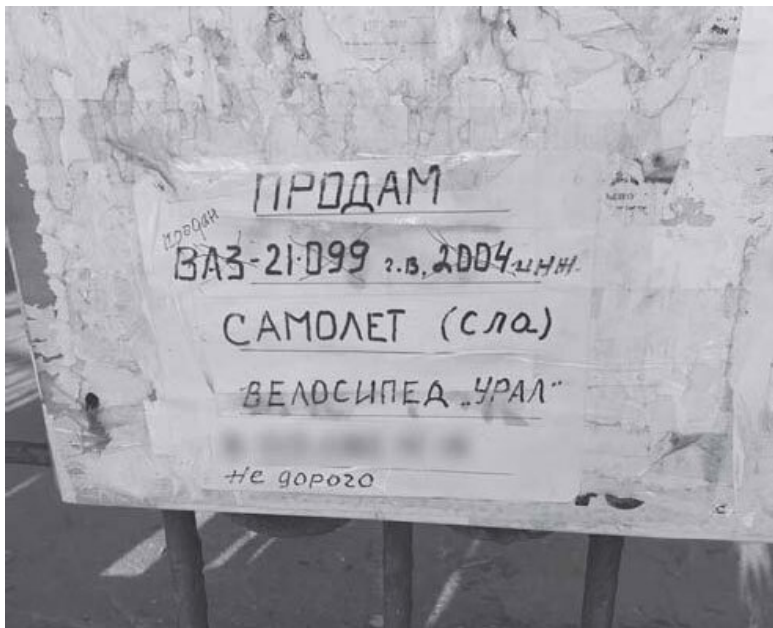 ПРОДАМ
продан
ВАЗ-21099 г.в. 2004 инж.
САМОЛЕТ (сла)
ВЕЛОСИПЕД „УРАЛ"
Не дорого